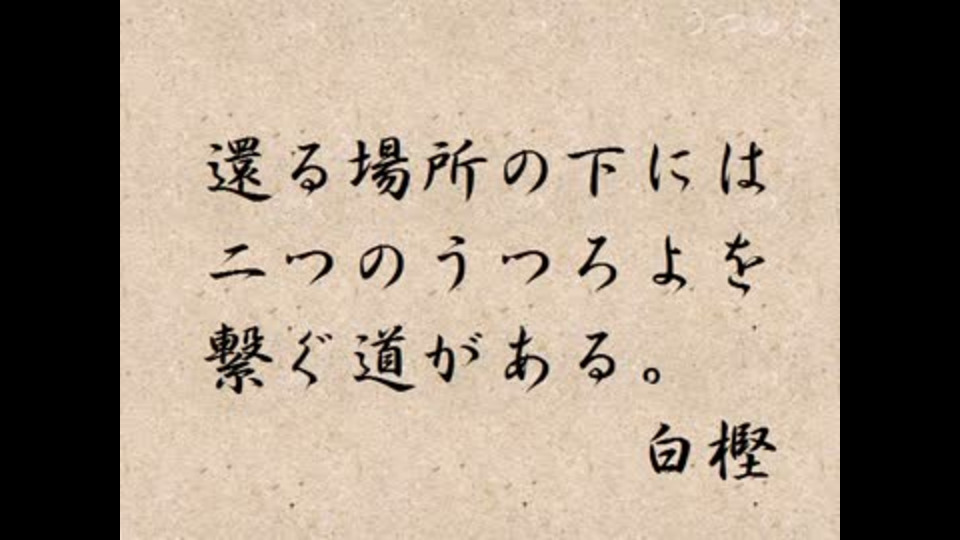 うつろよ
還る場所の下には
二つのうつろよを
繋ぐ道がある。
白樫